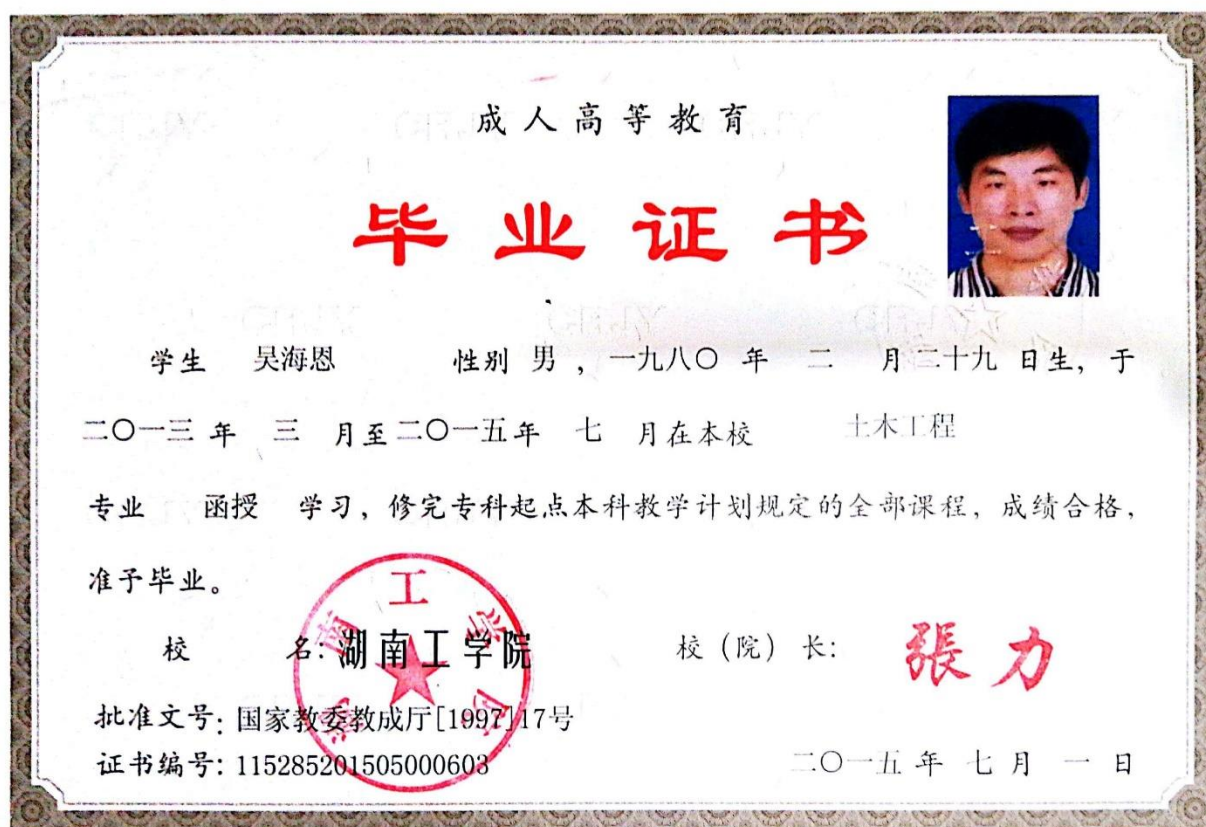 成人高等教育
毕业证书
学生 吴海恩 性别 男 ，一九八〇 年 二 月二十九 日生，于
二〇一三 年 三 月至二〇一五年 七 月在本校 土木工程
专业 函授 学习，修完专科起点本科教学计划规定的全部课程，成绩合格，
准予毕业。
校 名：湖南工学院
湖南工学院
校（院）长：
張力
批准文号：国家教委教成厅[1997]17号
证书编号：115285201505000603
二〇一五 年 七 月 一 日